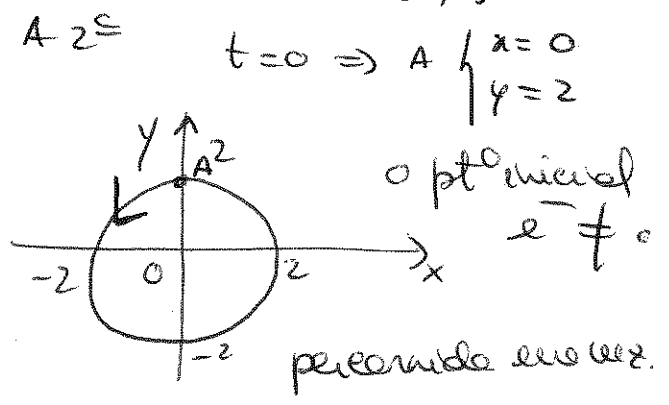 A 2ª
t=0 => A { x=0
y=2
y
A 2
o ptº inicial
é ≠ o
-2 0 2 x
-2
percorrida uma vez.